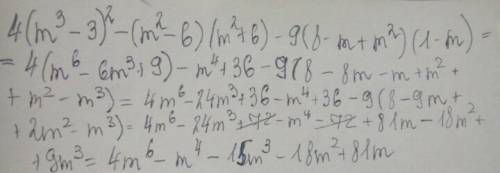 4(m³ - 3)² - (m² - 6)(m² + 6) - 9(8 - m + m²)(1 - m) =
= 4(m⁶ - 6m³ + 9) - m⁴ + 36 - 9(8 - 8m - m + m² +
+ m² - m³) = 4m⁶ - 24m³ + 36 - m⁴ + 36 - 9(8 - 9m +
+ 2m² - m³) = 4m⁶ - 24m³ + 72 - m⁴ - 72 + 81m - 18m² +
+ 9m³ = 4m⁶ - m⁴ - 15m³ - 18m² + 81m